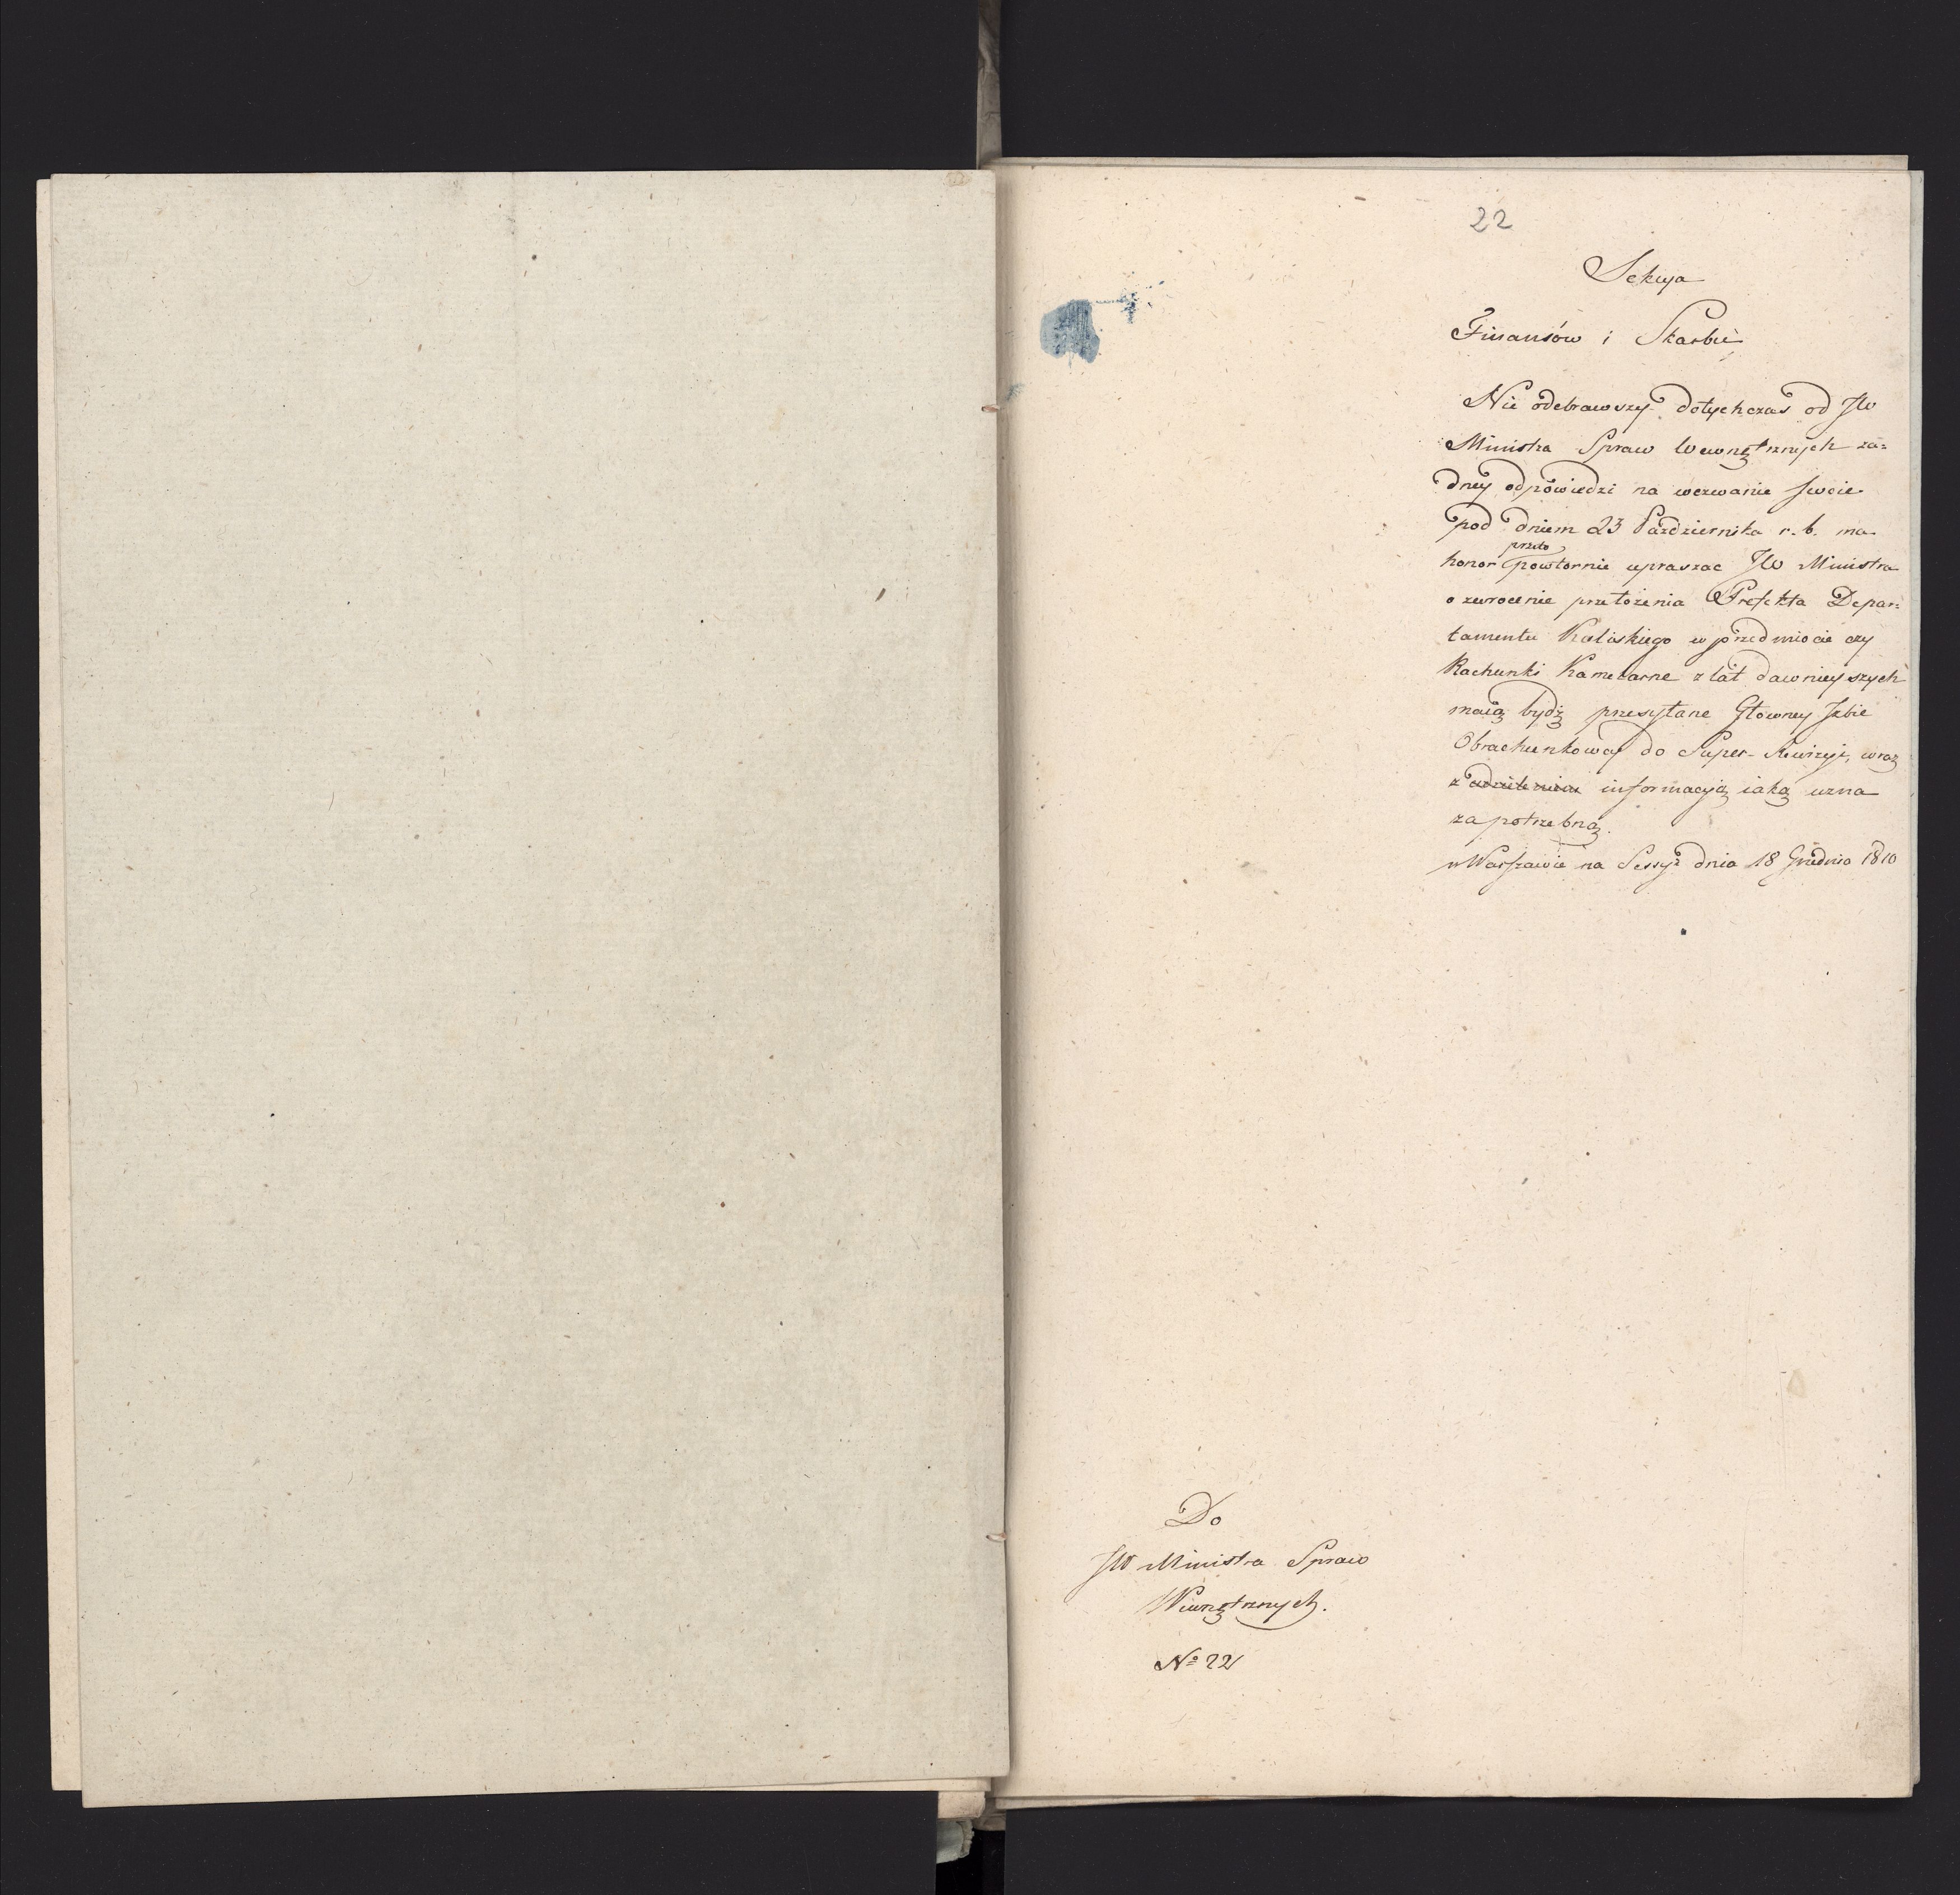 22
Sekcya
Finansów i Skarbu
Nie odebrawszy dotychczas od JW
Ministra Spraw Wewnętrznych ża=
dney odpowiedzi na wezwanie swoie
pod dniem 23 Października r. b. ma
przeto
honor powtornie upraszac JW Ministra
o zwrocenie przełożenia Prefekta Depar=
tamentu Kaliskiego w przedmiocie czy
Rachunki Kameralne z lat dawnieyszych
maią bydź przesyłane Głowney Izbie
Obrachunkowey do Super-Rewizyi, wraz
z udzieleniem informacyią iaką uzna
za potrzebną.
w Warszawie na Sessyi dnia 18 Grudnia 1810
Do
JW Ministra Spraw
Wewnętrznych.
No 22